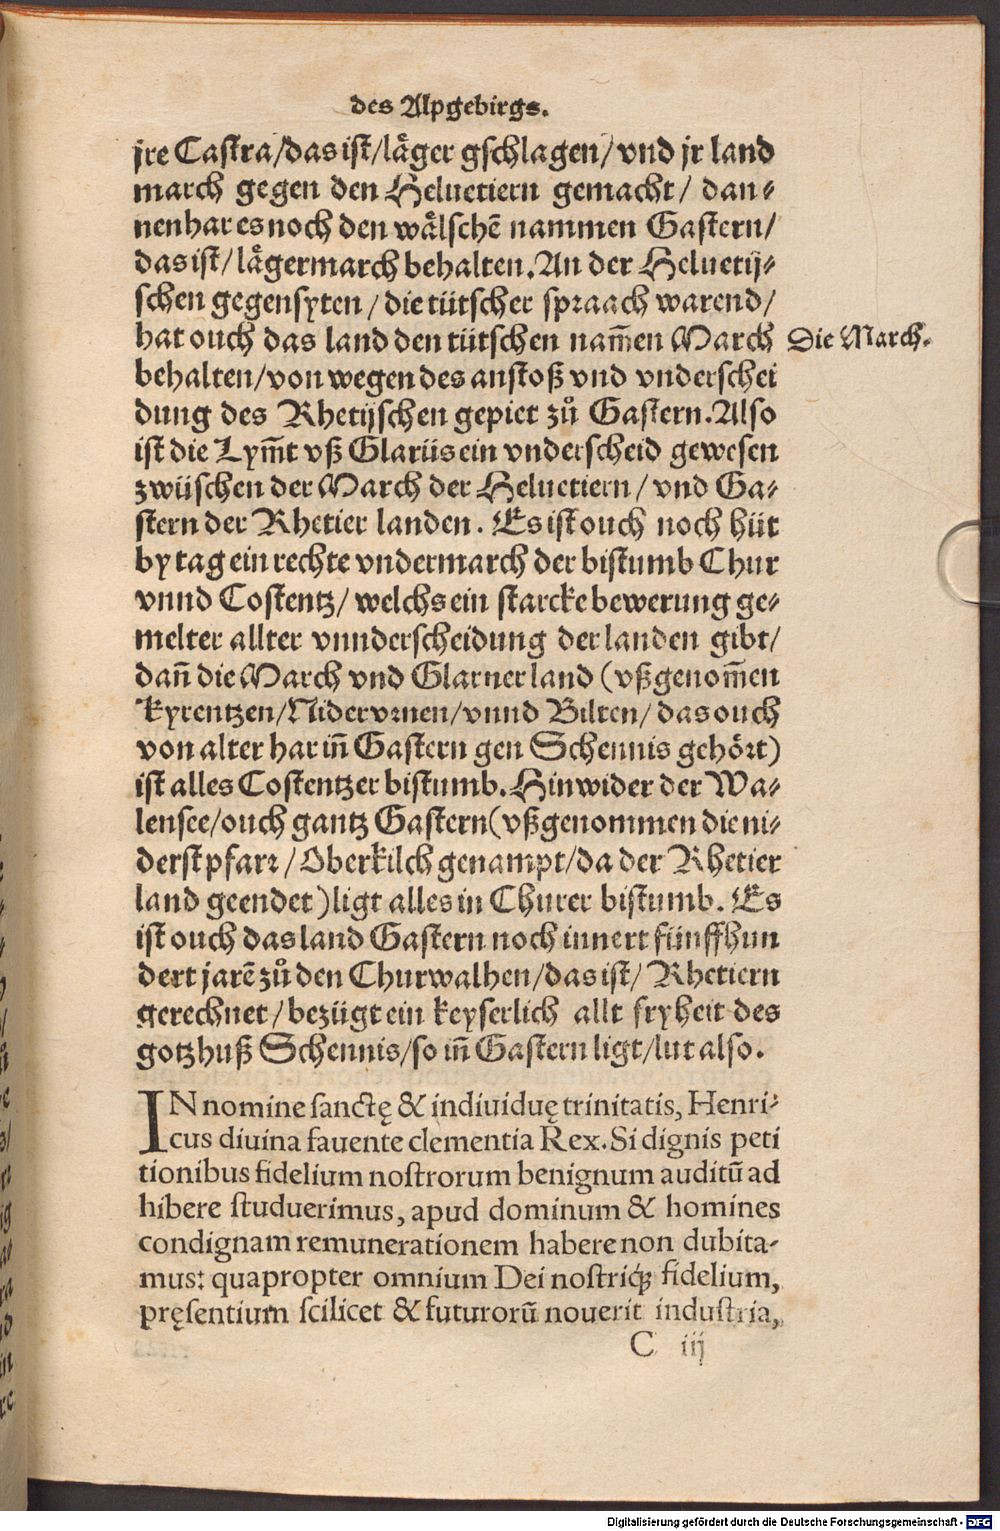 des Alpgebirgs.
jre Castra/das ist/läger gschlagen/vnd jr land
march gegen den Heluetiern gemacht/ dan⸗
nenhar es noch den wälschē nammen Gastern/
das ist/lägermarch behalten. An der Heluetij⸗
schen gegensyten/die tütscher spraach warend/
hat ouch das land den tütschen nam̄en March
Die March.
behalten/von wegen des anstoß vnd vnderschei
dung des Rhetijschen gepiet zů Gastern. Also
ist die Lym̄t vß Glarüs ein vnderscheid gewesen
zwüschen der March der Heluetiern/vnd Ga⸗
stern der Rhetier landen. Es ist ouch noch hüt
by tag ein rechte vndermarch der bistumb Chur
vnnd Costentz/welchs ein starcke bewerung ge⸗
melter allter vnnderscheidung der landen gibt/
dañ die March vnd Glarner land (vßgenom̄en
Kyrentzen/Nidervrnen/vnnd Bilten/das ouch
von alter har iñ Gastern gen Schennis gehört)
ist alles Costentzer bistumb. Hinwider der Wa⸗
lensee/ouch gantz Gastern(vßgenommen die ni⸗
derst pfarr/Oberkilch genampt/da der Rhetier
land geendet)ligt alles in Churer bistumb. Es
ist ouch das land Gastern noch innert fünffhun
dert jarē zů den Churwalhen/das ist/Rhetiern
gerechnet/bezügt ein keyserlich allt fryheit des
gotzhuß Schennis/so iñ Gastern ligt/lut also.
IN nomine sanctę & indiuiduę trinitatis, Henri⸗
cus diuina fauente clementia Rex. Si dignis peti
tionibus fidelium nostrorum benignum auditū ad
hibere studuerimus, apud dominum & homines
condignam remunerationem habere non dubita⸗
mus: quapropter omnium Dei nostriq; fidelium,
pręsentium scilicet & futurorū nouerit industria,
C iij
Digitalisierung gefördert durch die Deutsche Forschungsgemeinschaft - DFG